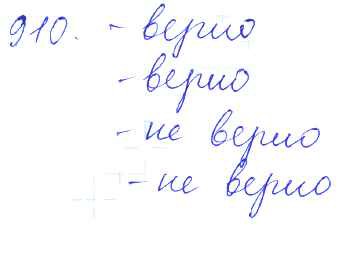 910. - верно
- верно
- не верно
- не верно